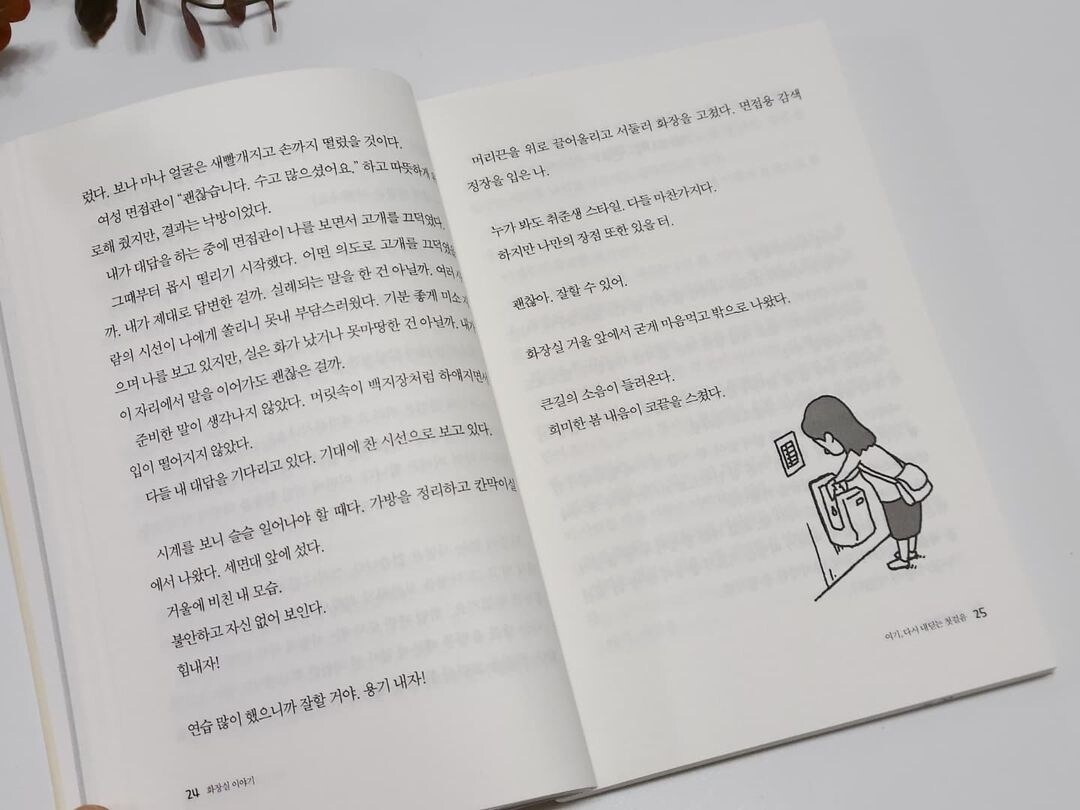 렸다. 보나 마나 얼굴은 새빨개지고 손까지 떨렸을 것이다.
여성 면접관이 “괜찮습니다. 수고 많으셨어요.” 하고 따뜻하게
로해 줬지만, 결과는 낙방이었다.
내가 대답을 하는 중에 면접관이 나를 보면서 고개를 끄덕였다.
그때부터 몹시 떨리기 시작했다. 어떤 의도로 고개를 끄덕였을
까. 내가 제대로 답변한 걸까. 실례되는 말을 한 건 아닐까. 여러
람의 시선이 나에게 쏠리니 못내 부담스러웠다. 기분 좋게 미소
으며 나를 보고 있지만, 실은 화가 났거나 못마땅한 건 아닐까. 내가
이 자리에서 말을 이어가도 괜찮은 걸까.
준비한 말이 생각나지 않았다. 머릿속이 백지장처럼 하얘지면서
입이 떨어지지 않았다.
다들 내 대답을 기다리고 있다. 기대에 찬 시선으로 보고 있다.
시계를 보니 슬슬 일어나야 할 때다. 가방을 정리하고 칸막이실
에서 나왔다. 세면대 앞에 섰다.
거울에 비친 내 모습.
불안하고 자신 없어 보인다.
힘내자!
연습 많이 했으니까 잘할 거야. 용기 내자!
24 화장실 이야기
머리끈을 위로 끌어올리고 서둘러 화장을 고쳤다. 면접용 감색
정장을 입은 나.
누가 봐도 취준생 스타일. 다들 마찬가지다.
하지만 나만의 장점 또한 있을 터.
괜찮아. 잘할 수 있어.
화장실 거울 앞에서 굳게 마음먹고 밖으로 나왔다.
큰길의 소음이 들려온다.
희미한 봄 내음이 코끝을 스쳤다.
여기, 다시 내딛는 첫걸음 25